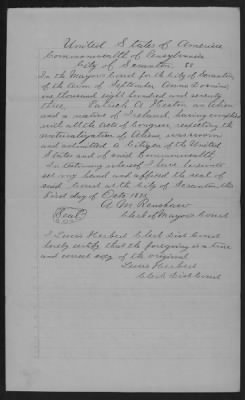 United States of America
Commonwealth of Pennsylvania
City of Scranton SS
In the Mayors Court for the City of Scranton
of the Term of September Anno Domini
one thousand eight hundred and seventy
three, Patrick A. Heston an Alien
and a native of Ireland having complied
with all the Acts of Congress respecting the
naturalization of Aliens, was sworn
and admitted a Citizen of the United
States and of said Commonwealth.
In testimony whereof I have hereunto
set my hand and affixed the seal of
said Court at the City of Scranton this
First day of Octo.
A. M. Renshaw
Seal Clerk of Mayors Court
I Lewis Herbert Clerk Dist Court
hereby certify that the foregoing is a true
and correct copy of the original
Lewis Herbert
Clerk Dist Court